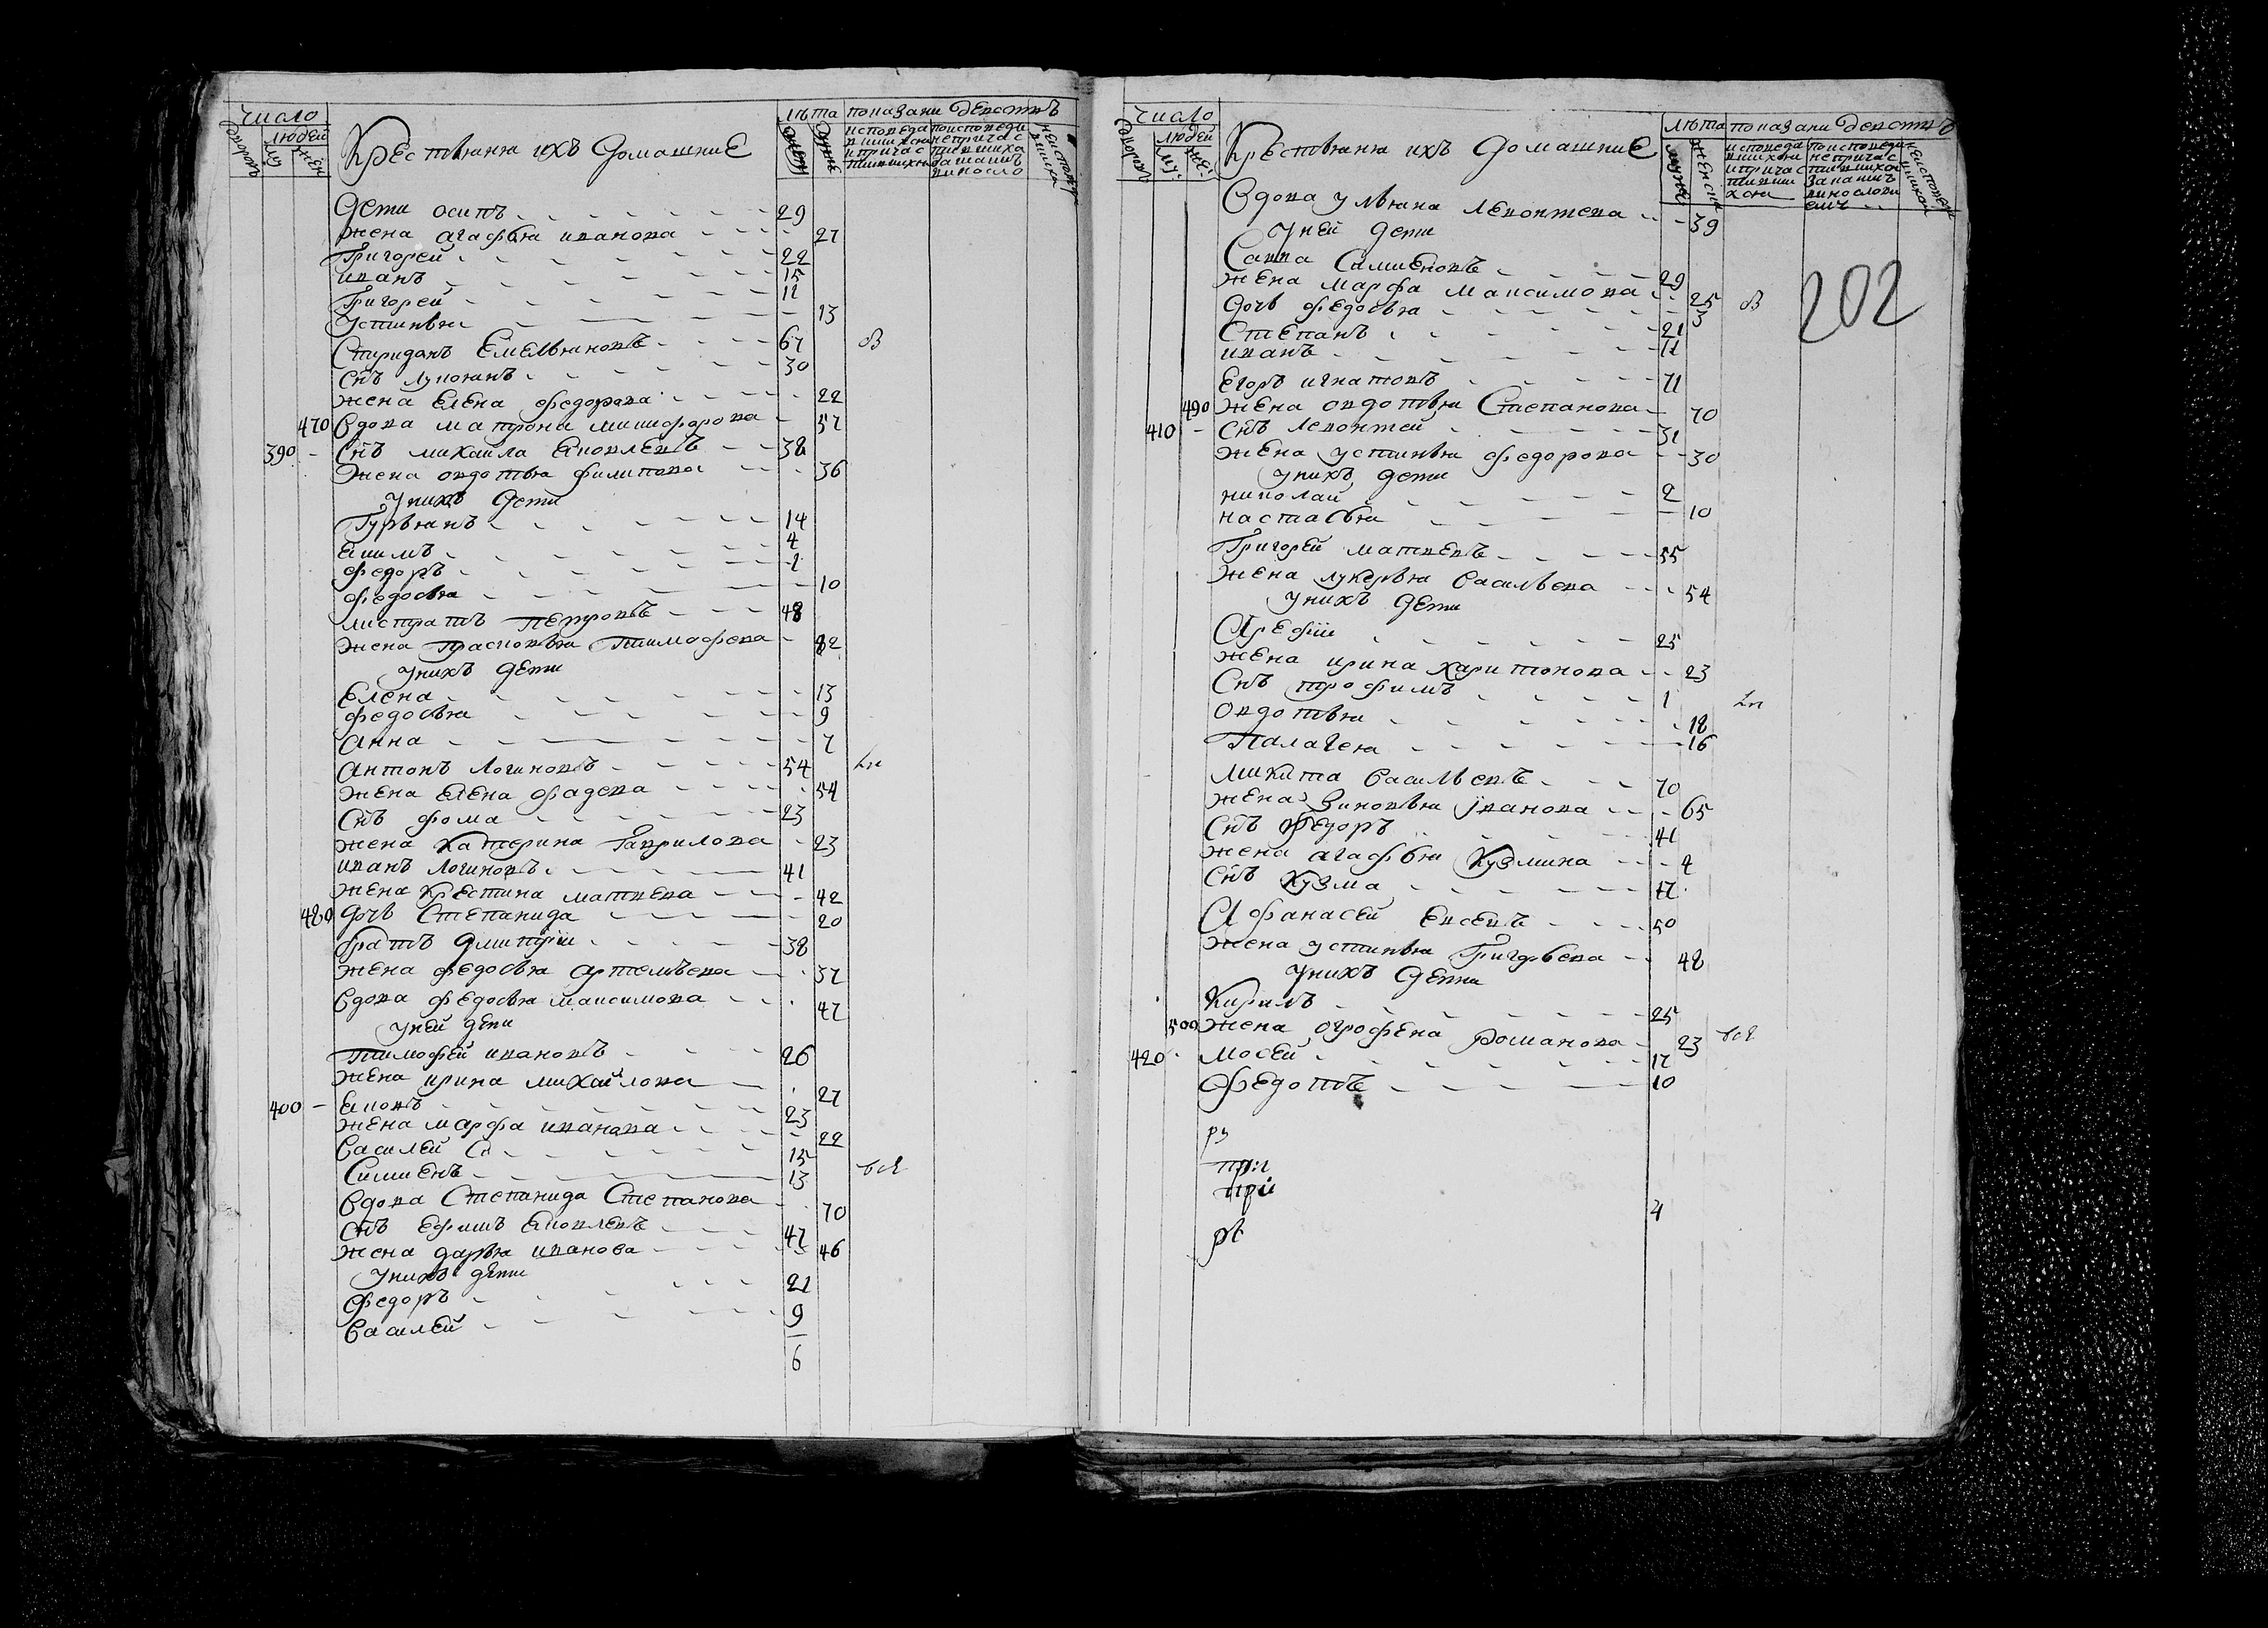 число
людей
дворовъ
муж
жен
Крестьяня ихъ домашние
лѣта
показани действъ
Дети осипъ 29
жена агафья иванова 27
Григорей 22
иванъ 15
Григорей 11
устинья 13
Спиридонъ Емельяновъ 67 об
Снъ лукоянъ 30
жена Елена федорова 22
470 Вдова матрона никифорова 57
390 Снъ михайла Яковлевъ 38
жена овдотья филипова 36
у нихъ дети
Гурьянъ 14
Якимъ 4
федоръ 1
федосья 10
мистратъ Петровъ 48
жена Прасковья Тимофева 82
у нихъ дети
Елена 13
федосья 9
Анна 7
Антонъ логиновъ 54
жена Елена фадева 54
Снъ фома 23
жена Катерина Гаврилова 23
иванъ логиновъ 41
жена Крестина матвева 42
480 Дочь Степанида 20
братъ дмитрiи 38
жена федосья артемьева 37
Вдова федосья максимова 47
у ней дети
Тимофей ивановъ 26
жена ирина михайлова 27
400 Яковъ 23
жена марфа иванова 22
Василей 15
Симионъ 13
Вдова Степанида Степанова 70
Снъ Ефимъ Яковлевъ 47
жена дарья иванова 46
у нихъ дети
федоръ 21
Василей 9
6
число
людей
дворовъ
муж
жен
Крестьяня ихъ домашние
лѣта
показани действъ
Вдова ульяна левонтева 39
у ней дети
Савва Симионовъ 29
жена марфа максимова 25 об
Дочь федосья 3
Степанъ 21
иванъ 11
202
Егоръ игнатовъ 71
490 жена овдотья Степанова 70
410 Снъ левонтей 31
жена устинья федорова 30
у нихъ дети
николай 2
настасья 10
Григорей матвевъ 55
жена лукерья Васильева 54
у нихъ дети
Арефiи 25
жена ирина харитонова 23
Снъ трофимъ 1
овдотья 18
Палагея 16
микита Васильевъ 70
жена Зиновья iванова 65
Снъ Федоръ 41
жена агафья Кузмина 4
Снъ Кузма 17
Афанасей Евсевъ 50
жена устинья Григорьева 48
у нихъ дети
Кирилъ 25
500 жена огрофена романова 23
420 мосей 17
Федотъ 10
4